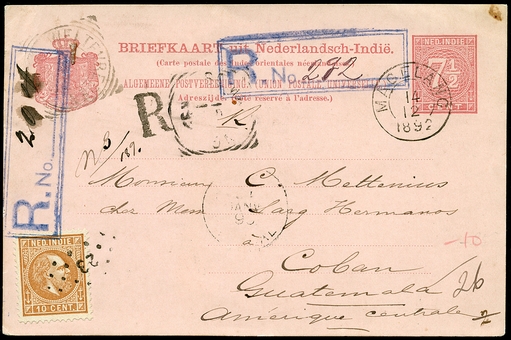 BRIEFKAART uit Nederlandsch-Indië.
(Carte postale des Indes orientales néerlandaises.)
ALGEMEENE POSTVEREENIGING (UNION POSTALE UNIVERSELLE)
Adreszijde. (Côté réservé à l'adresse.)
NED. INDIE
7½
CENT
R. No. 282
R. No.
R
MAGELANG
14
12
1892
Monsieur C. Mettenius
chez Mess Sarg Hermanos
à
Coban
Guatemala
Amérique centrale
-40
26
NED. INDIE
10 CENT.
23